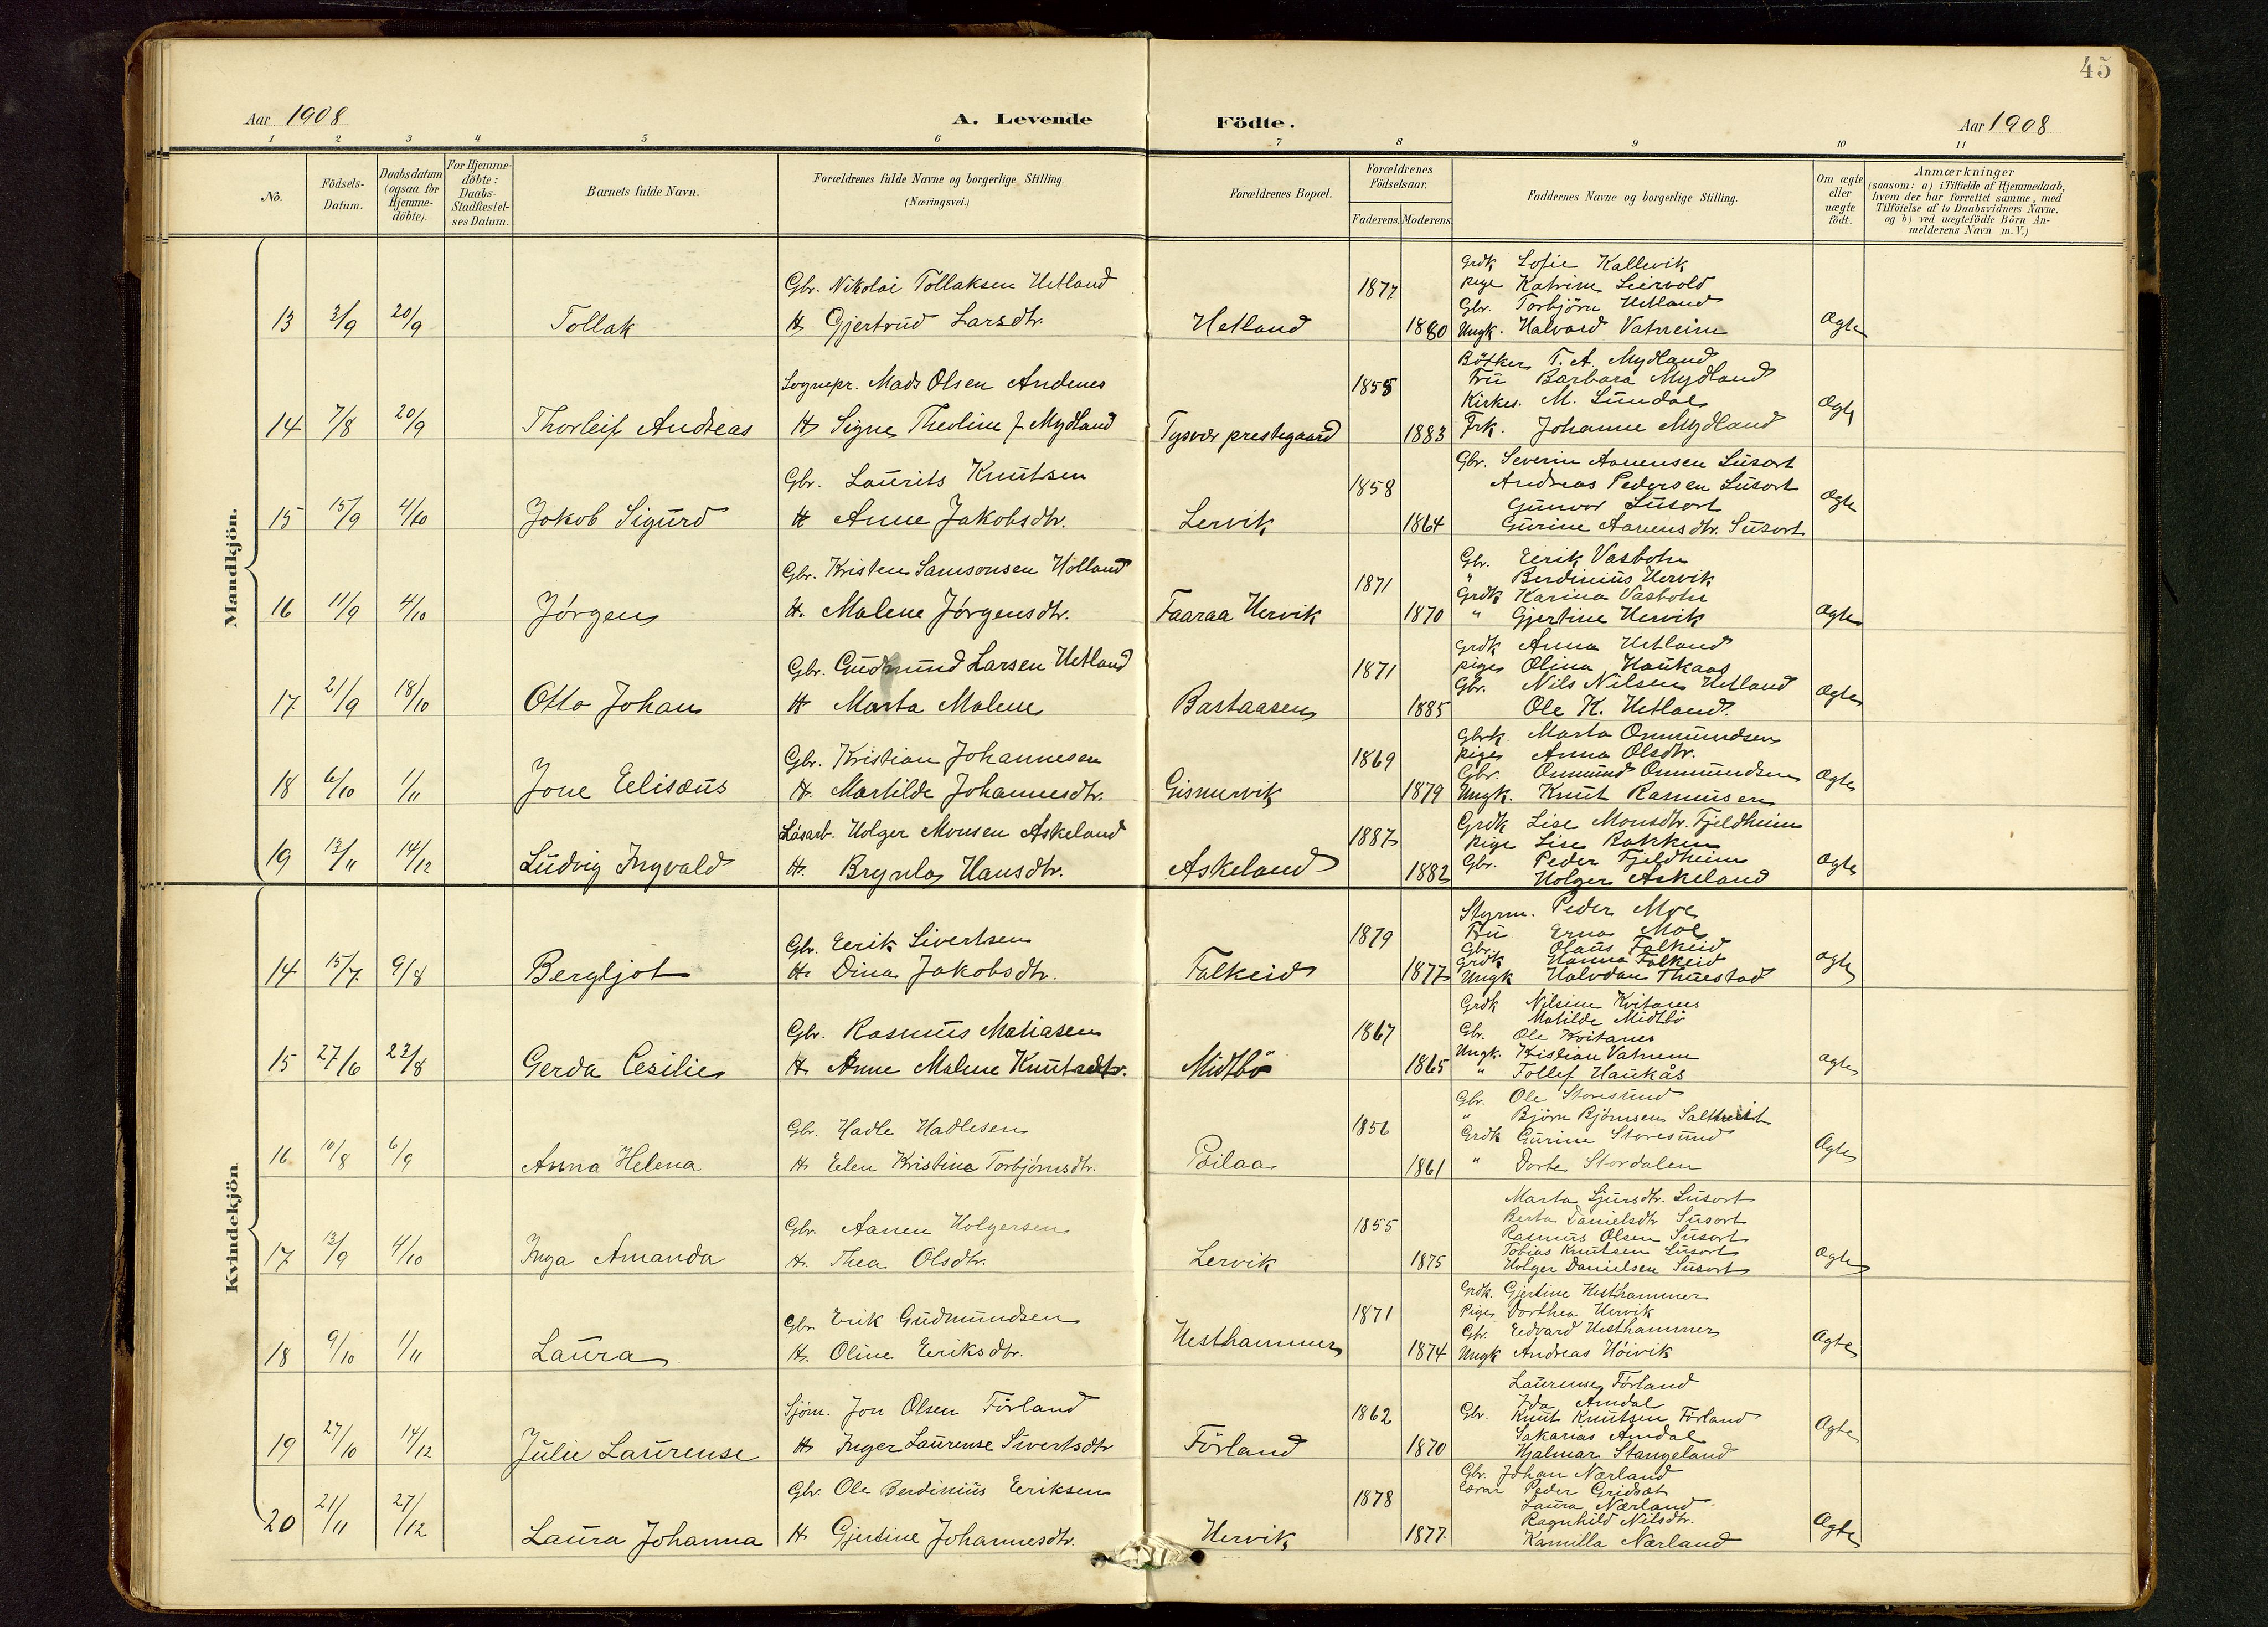 45
Aar 1908
A. Levende Födte.
Aar 1908
1 2 3 4 5 6 7 8 9 10 11
No.
Födsels-Datum.
Daabsdatum (ogsaa for Hjemme-döbte).
For Hjemme-döbte: Daabs-Stadfæstel-ses Datum.
Barnets fulde Navn.
Forældrenes fulde Navne og borgerlige Stilling. (Næringsvei.)
Forældrenes Bopæl.
Forældrenes Födselsaar.
Faderens. Moderens.
Faddernes Navne og borgerlige Stilling.
Om ægte eller uægte födt.
Anmærkninger
(saasom: a) i Tilfælde af Hjemmedaab, hvem der har forrettet samme, med Tilföielse af to Daabsvidners Navne, og b) ved uægtefödte Börn An-melderens Navn m. V.)
Mandkjön.
Gbr. Nikolai Tollaksen Hetland
13 3/9 20/9 Tollak H. Gjertrud Larsdtr. Hetland 1877 1880
Grdk Sofie Kallevik
Pige Katrine Leirvold
Gbr. Torbjörn Hetland
Ungk. Halvard Vatneim
Ægte
Sognepr. Mads Olsen Andenes
14 7/8 20/9 Thorleif Andreas H. Signe Theoline f. Mydland Tysvær prestegaard 1855 1883
Bötker T. A. Mydland
Fru Barbara Mydland
Kirkes. M. Lundal
Frk. Johanne Mydland
Ægte
Gbr. Laurits Knutsen
15 15/9 4/10 Jakob Sigurd H Anne Jakobsdtr. Lervik 1858 1864
Gbr. Severin Aanensen Susort
Andreas Pedersen Susort
Gunvor Susort
Gurine Aanensdtr. Susort
Ægte
Gbr. Kristen Samsonsen Holland
16 11/9 4/10 Jørgen H. Malene Jørgensdtr. Faaraa Hervik 1871 1870
Gbr. Eerik Vasbotn
" Berdinius Hervik
Grdk Karina Vasbotn
" Gjertine Hervik
Ægte
Gbr. Gudmund Larsen Hetland
17 21/9 18/10 Otto Johan H Marta Malene Bastaasen 1871 1885
Grdk Anna Hetland
Pige Olina Haukaas
Gbr. Nils Nilsen Hetland
Ole K. Hetland.
Ægte
Gbr. Kristian Johannesen
18 6/10 1/11 Jone Eelisæus H. Martilde Johannesdtr. Gismervik 1869 1879
Gbrk. Marta Onmundsen
Pige Anna Olsdtr.
Gbr. Onmund Onmundsen
Ungk. Knut Rasmusen
Ægte
Løsarb. Holger Monsen Askeland
19 13/11 14/12 Ludvig Ingvald H. Brynla Hansdtr. Askeland 1887 1882
Grdk Lise Monsdtr. Fjeldheim
Pige Lise Bakken
Gbr. Peder Fjeldheim
Holger Askeland
Ægte
Kvindekjön.
Gbr. Eerik Sivertsen
14 15/7 9/8 Bergljot H. Dina Jakobsdtr. Falkeid 1879 1877
Styrm. Peder Moe
Fru Erna Moe
Gbr. Olaus Falkeid
Grdk Hanna Falkeid
Ungk Halvdan Thuestad
Ægte
Gbr. Rasmus Matiasen
15 27/6 23/8 Gerda Cesilie H. Anne Malene Knutsdtr. Midtbö 1867 1865
Grdk Nilsine Kvitanes
Matilde Midtbö
Gbr. Ole Kvitanes
Ungk. Kistian Vatnem
" Tollef Haukås
Ægte
Gbr. Hadle Hadlesen
16 10/8 6/9 Anna Helena H. Elen Kristine Torbjörnsdtr. Poilaa 1856 1861
Gbr. Ole Storesund
" Björn Björnsen
Grdk Gurine Storesund
" Dorte Stordalen
Ægte
Gbr. Aanen Holgersen
17 13/9 4/10 Inga Amanda H. Thea Olsdtr. Lervik 1855 1875
Marta Sjursdtr. Susort
Berta Danielsdtr Susort
Rasmus Olsen Susort
Tobias Knutsen Susort
Holger Danielsen Susort
Ægte
Gbr Erik Gudmundsen
18 9/10 1/11 Laura H. Oline Eeriksdtr. Hesthammer 1871 1874
Grdk. Gjertine Hesthammer
Pige Dorthea Hervik
Gbr. Eedvard Hesthammer
Ungk Andreas Höivik
Ægte
Sjöm. Jon Olsen Förland
19 27/10 14/12 Julie Laurense H Inger Laurense Sivertsdtr Förland 1862 1870
Laurense Förland
Ida Amdal
Gbr. Knut Knutsen Förland
Sakarias Amdal
Hjalmar Stangeland
Ægte
Gbr. Ole Berdinius Eeriksen
20 21/11 27/12 Laura Johanna H Gjertine Johannesdtr. Hervik 1878 1877
Gbr. Johan Nærland
Peder
Laura Nærland
Ragnhild Nilsdtr.
Kamilla Nærland
Ægte